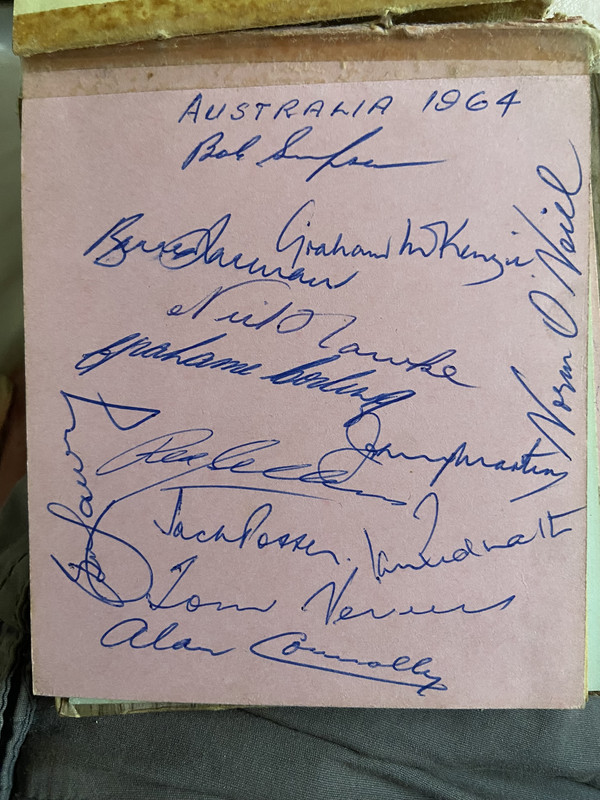 AUSTRALIA 1964
Bob Simpson
Graham McKenzie
Norm O'Neill
Neil Hawke
Grahame Corling
Johnny Martin
Bill Lawry
Jack Potter
Ian Redpath
Tom Veivers
Alan Connolly